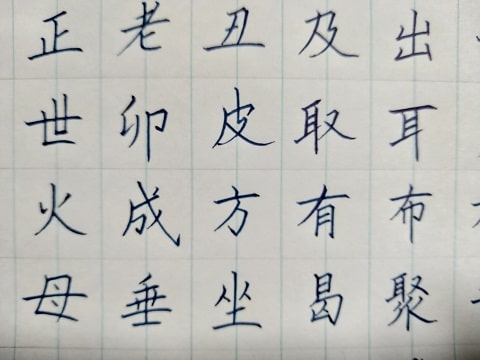 正老丑及出
世卯皮取耳
火成方有布
母垂坐曷聚